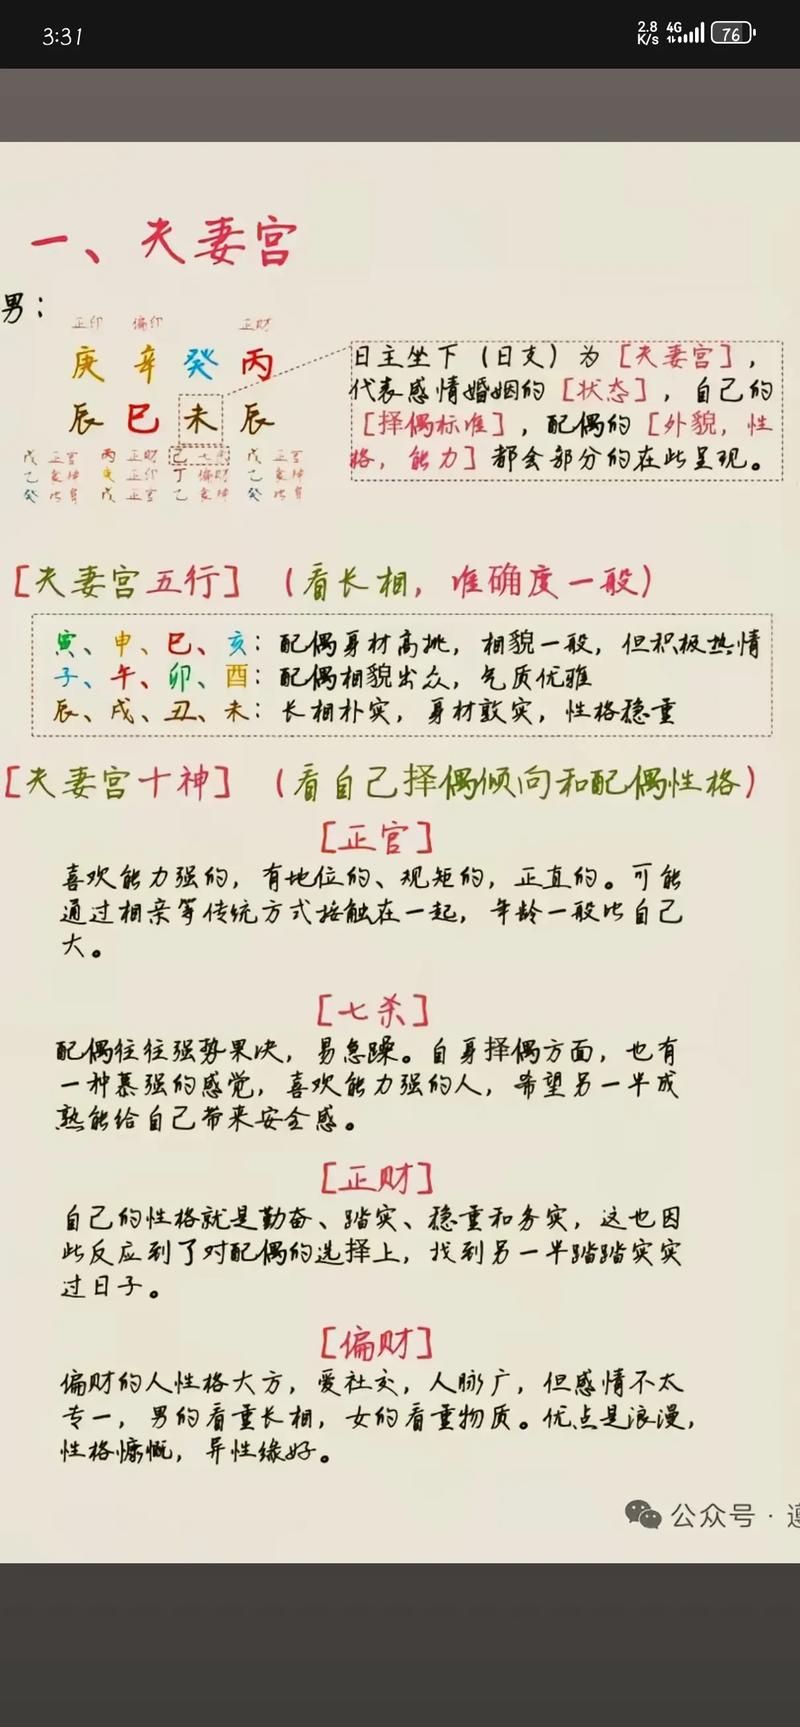 3:31
2.8 K/s 4G 76
一、夫妻宫
男：
正印 偏印 正财
庚 辛 癸 丙
辰 巳 未 辰
戊 正官 丙 正财 己 七杀 戊 正官
乙 食神 庚 正印 丁 偏财 乙 食神
癸 比肩 戊 正官 乙 食神 癸 比肩
日主坐下（日支）为［夫妻宫］，
代表感情婚姻的［状态］，自己的
［择偶标准］，配偶的［外貌，性
格，能力］都会部分的在此呈现。
［夫妻宫五行］（看长相，准确度一般）
寅、申、巳、亥：配偶身材高挑，相貌一般，但积极热情
子、午、卯、酉：配偶相貌出众，气质优雅
辰、戌、丑、未：长相朴实，身材敦实，性格稳重
［夫妻宫十神］（看自己择偶倾向和配偶性格）
［正官］
喜欢能力强的，有地位的、规矩的，正直的。可能
通过相亲等传统方式接触在一起，年龄一般比自己
大。
［七杀］
配偶往往强势果决，易急躁。自身择偶方面，也有
一种慕强的感觉，喜欢能力强的人，希望另一半成
熟能给自己带来安全感。
［正财］
自己的性格就是勤奋、踏实、稳重和务实，这也因
此反应到了对配偶的选择上，找到另一半踏踏实实
过日子。
［偏财］
偏财的人性格大方，爱社交，人脉广，但感情不太
专一，男的看重长相，女的看重物质。优点是浪漫，
性格慷慨，异性缘好。
公众号 ·